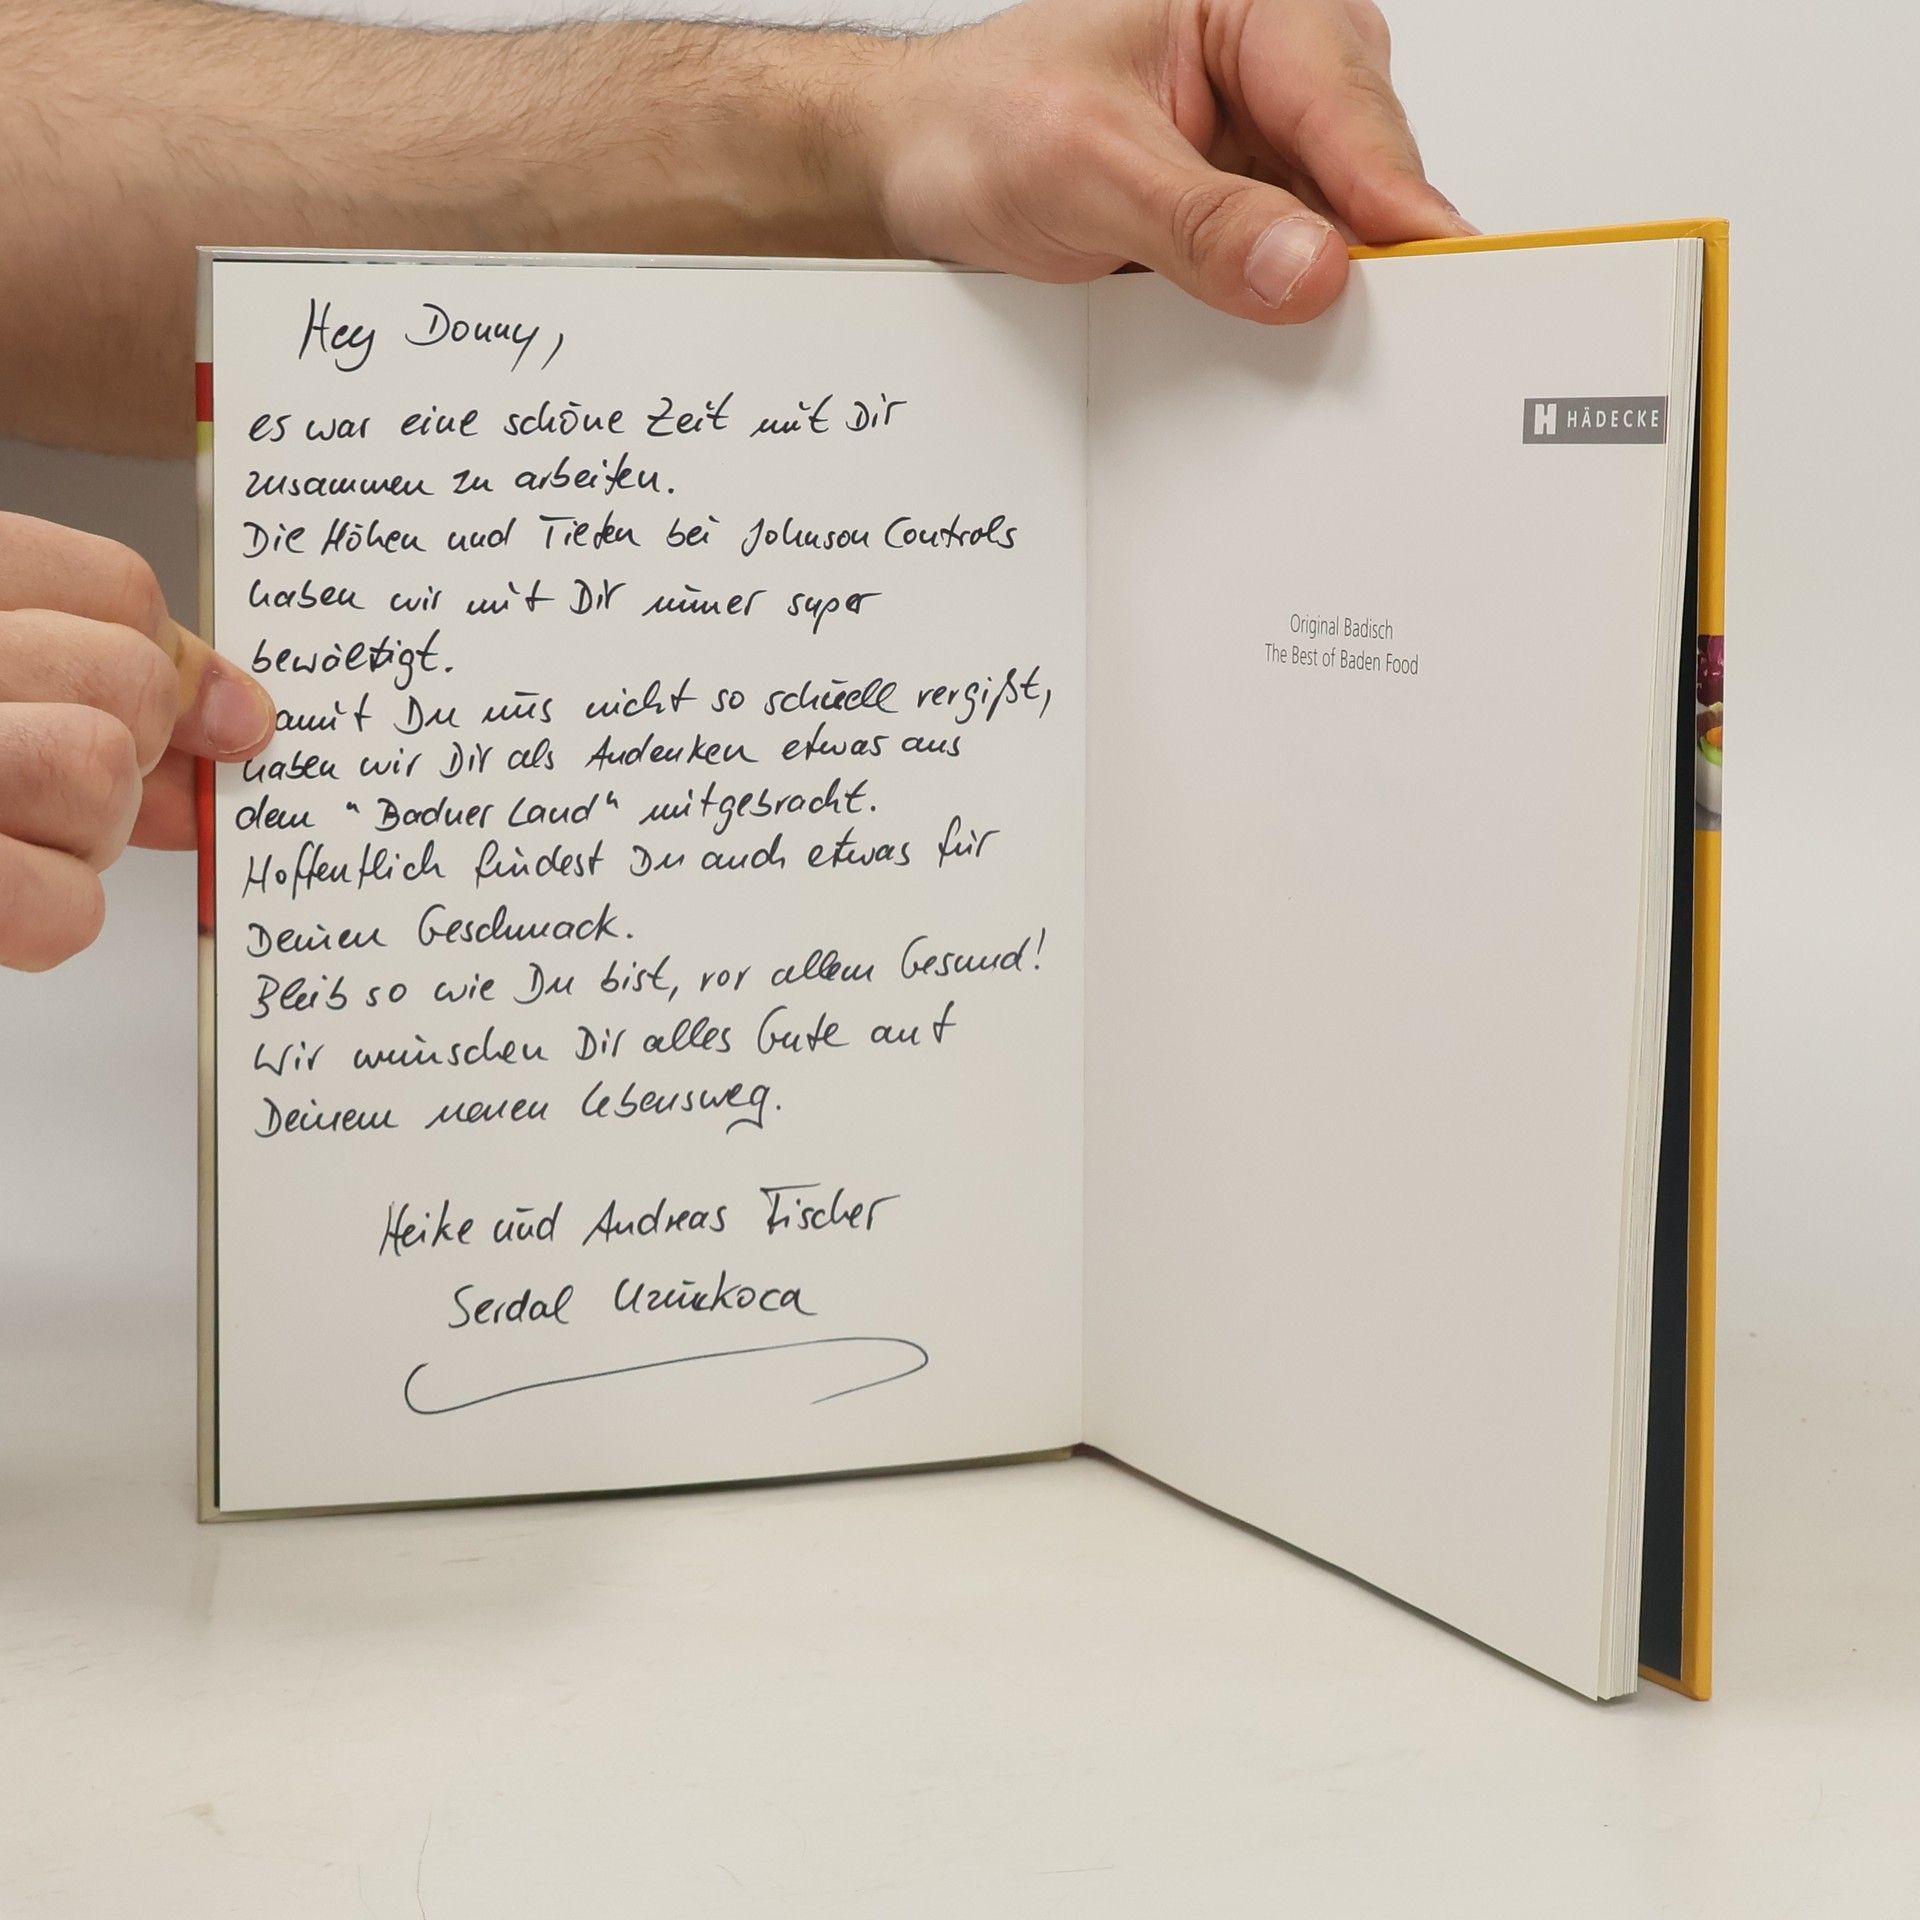 Hey Donny,
es war eine schöne Zeit mit Dir
zusammen zu arbeiten.
Die Höhen und Tiefen bei Johnson Controls
haben wir mit Dir immer super
bewältigt.
amit Du uns nicht so schnell vergißt,
haben wir Dir als Andenken etwas aus
dem "Badner Land" mitgebracht.
Hoffentlich findest Du auch etwas für
Deinen Geschmack.
Bleib so wie Du bist, vor allem Gesund!
Wir wünschen Dir alles Gute auf
Deinem neuen Lebensweg.
Heike und Andreas Fischer
Serdal
H HÄDECKE
Original Badisch
The Best of Baden Food